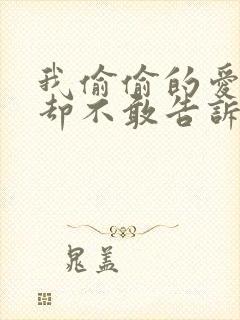 我偷偷的爱
却不敢告訴
晁盖